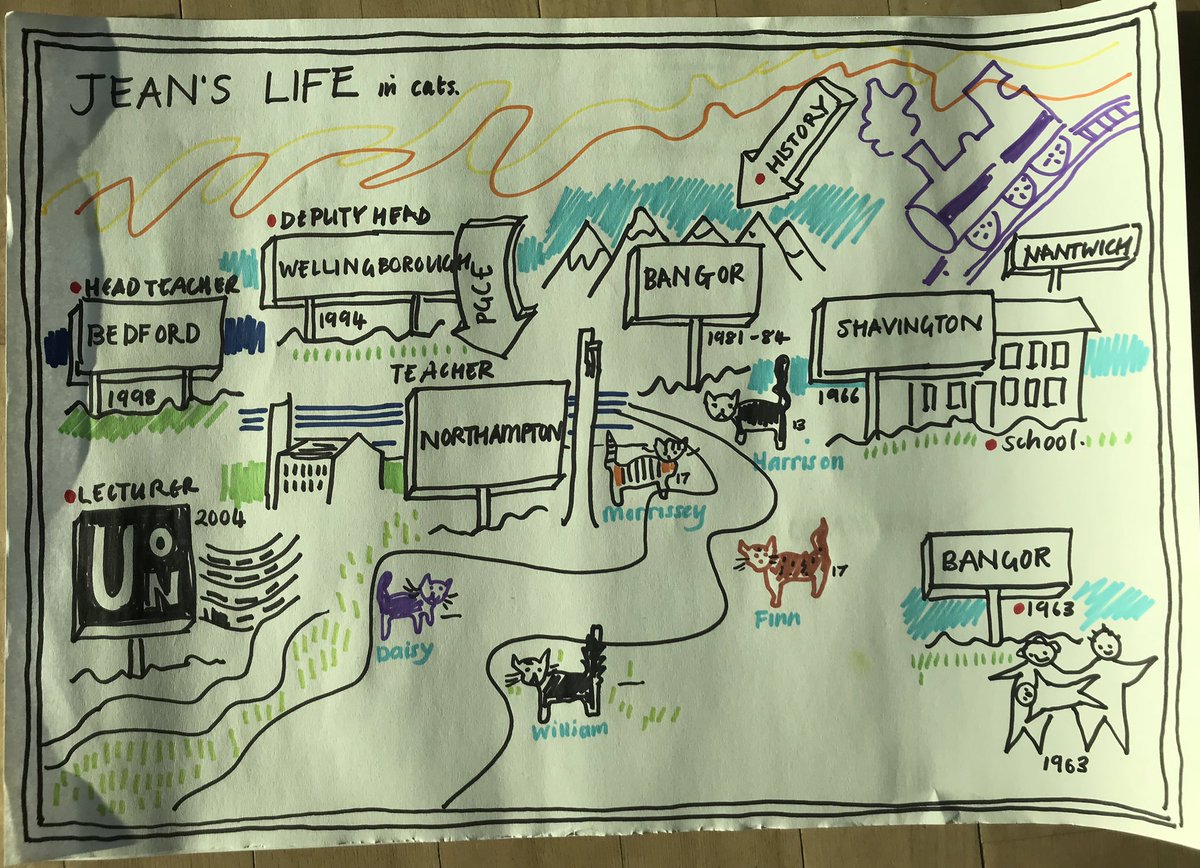 JEAN'S LIFE in cats.
HISTORY
DEPUTY HEAD
WELLINGBOROUGH
PGCE
1994
BANGOR
1981-84
NANTWICH
SHAVINGTON
1966
school.
HEADTEACHER
BEDFORD
1998
TEACHER
NORTHAMPTON
13
Harrison
17
Morrissey
LECTURER
2004
UON
17
Finn
Daisy
William
BANGOR
1963
1963